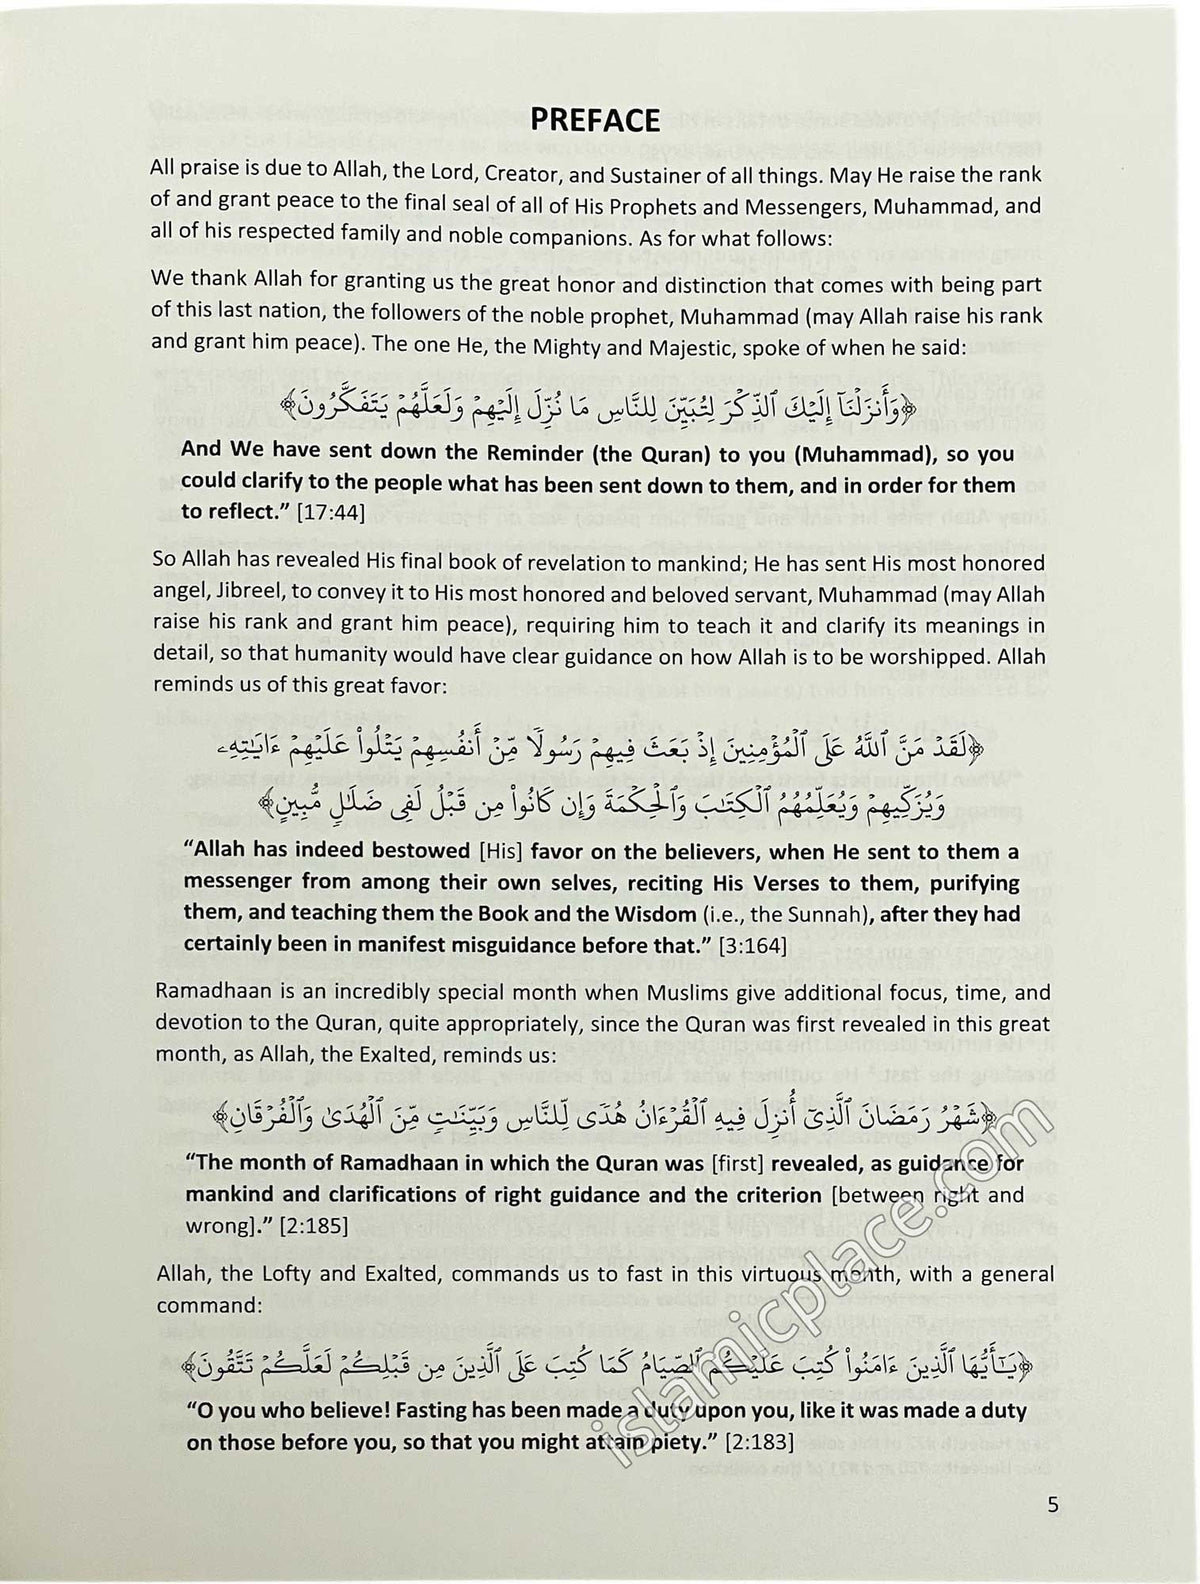 PREFACE
All praise is due to Allah, the Lord, Creator, and Sustainer of all things. May He raise the rank
of and grant peace to the final seal of all of His Prophets and Messengers, Muhammad, and
all of his respected family and noble companions. As for what follows:
We thank Allah for granting us the great honor and distinction that comes with being part
of this last nation, the followers of the noble prophet, Muhammad (may Allah raise his rank
and grant him peace). The one He, the Mighty and Majestic, spoke of when he said:
﴿وَأَنزَلْنَآ إِلَيْكَ ٱلذِّكْرَ لِتُبَيِّنَ لِلنَّاسِ مَا نُزِّلَ إِلَيْهِمْ وَلَعَلَّهُمْ يَتَفَكَّرُونَ﴾
And We have sent down the Reminder (the Quran) to you (Muhammad), so you
could clarify to the people what has been sent down to them, and in order for them
to reflect.” [17:44]
So Allah has revealed His final book of revelation to mankind; He has sent His most honored
angel, Jibreel, to convey it to His most honored and beloved servant, Muhammad (may Allah
raise his rank and grant him peace), requiring him to teach it and clarify its meanings in
detail, so that humanity would have clear guidance on how Allah is to be worshipped. Allah
reminds us of this great favor:
﴿لَقَدْ مَنَّ ٱللَّهُ عَلَى ٱلْمُؤْمِنِينَ إِذْ بَعَثَ فِيهِمْ رَسُولًا مِّنْ أَنفُسِهِمْ يَتْلُوا۟ عَلَيْهِمْ ءَايَـٰتِهِۦ
وَيُزَكِّيهِمْ وَيُعَلِّمُهُمُ ٱلْكِتَـٰبَ وَٱلْحِكْمَةَ وَإِن كَانُوا۟ مِن قَبْلُ لَفِى ضَلَـٰلٍ مُّبِينٍ﴾
“Allah has indeed bestowed [His] favor on the believers, when He sent to them a
messenger from among their own selves, reciting His Verses to them, purifying
them, and teaching them the Book and the Wisdom (i.e., the Sunnah), after they had
certainly been in manifest misguidance before that.” [3:164]
Ramadhaan is an incredibly special month when Muslims give additional focus, time, and
devotion to the Quran, quite appropriately, since the Quran was first revealed in this great
month, as Allah, the Exalted, reminds us:
﴿شَهْرُ رَمَضَانَ ٱلَّذِىٓ أُنزِلَ فِيهِ ٱلْقُرْءَانُ هُدًى لِّلنَّاسِ وَبَيِّنَـٰتٍ مِّنَ ٱلْهُدَىٰ وَٱلْفُرْقَانِ﴾
“The month of Ramadhaan in which the Quran was [first] revealed, as guidance for
mankind and clarifications of right guidance and the criterion [between right and
wrong].” [2:185]
Allah, the Lofty and Exalted, commands us to fast in this virtuous month, with a general
command:
﴿يَـٰٓأَيُّهَا ٱلَّذِينَ ءَامَنُوا۟ كُتِبَ عَلَيْكُمُ ٱلصِّيَامُ كَمَا كُتِبَ عَلَى ٱلَّذِينَ مِن قَبْلِكُمْ لَعَلَّكُمْ تَتَّقُونَ﴾
“O you who believe! Fasting has been made a duty upon you, like it was made a duty
on those before you, so that you might attain piety.” [2:183]
5
islamicplace.com